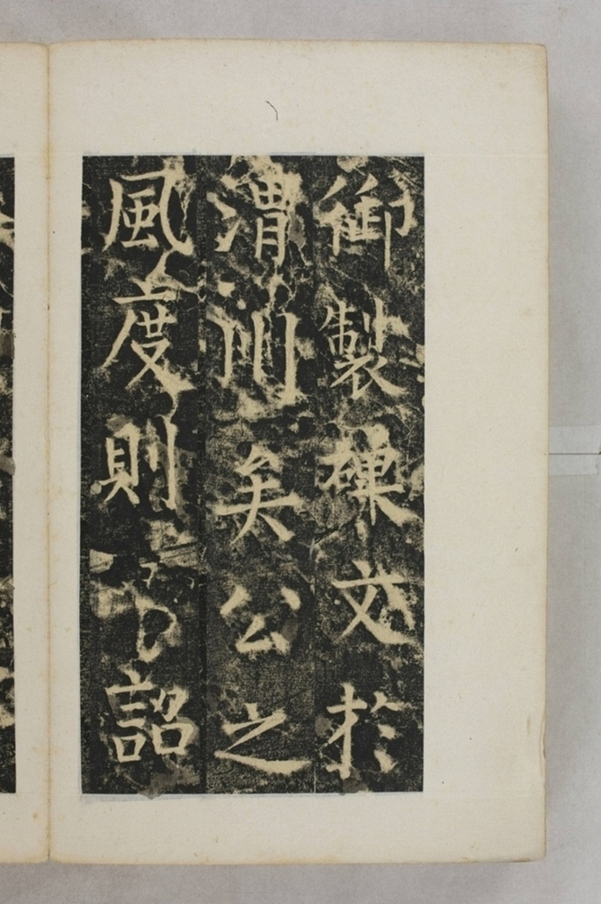 御製碑文於
渭州矣公之
風度則詔